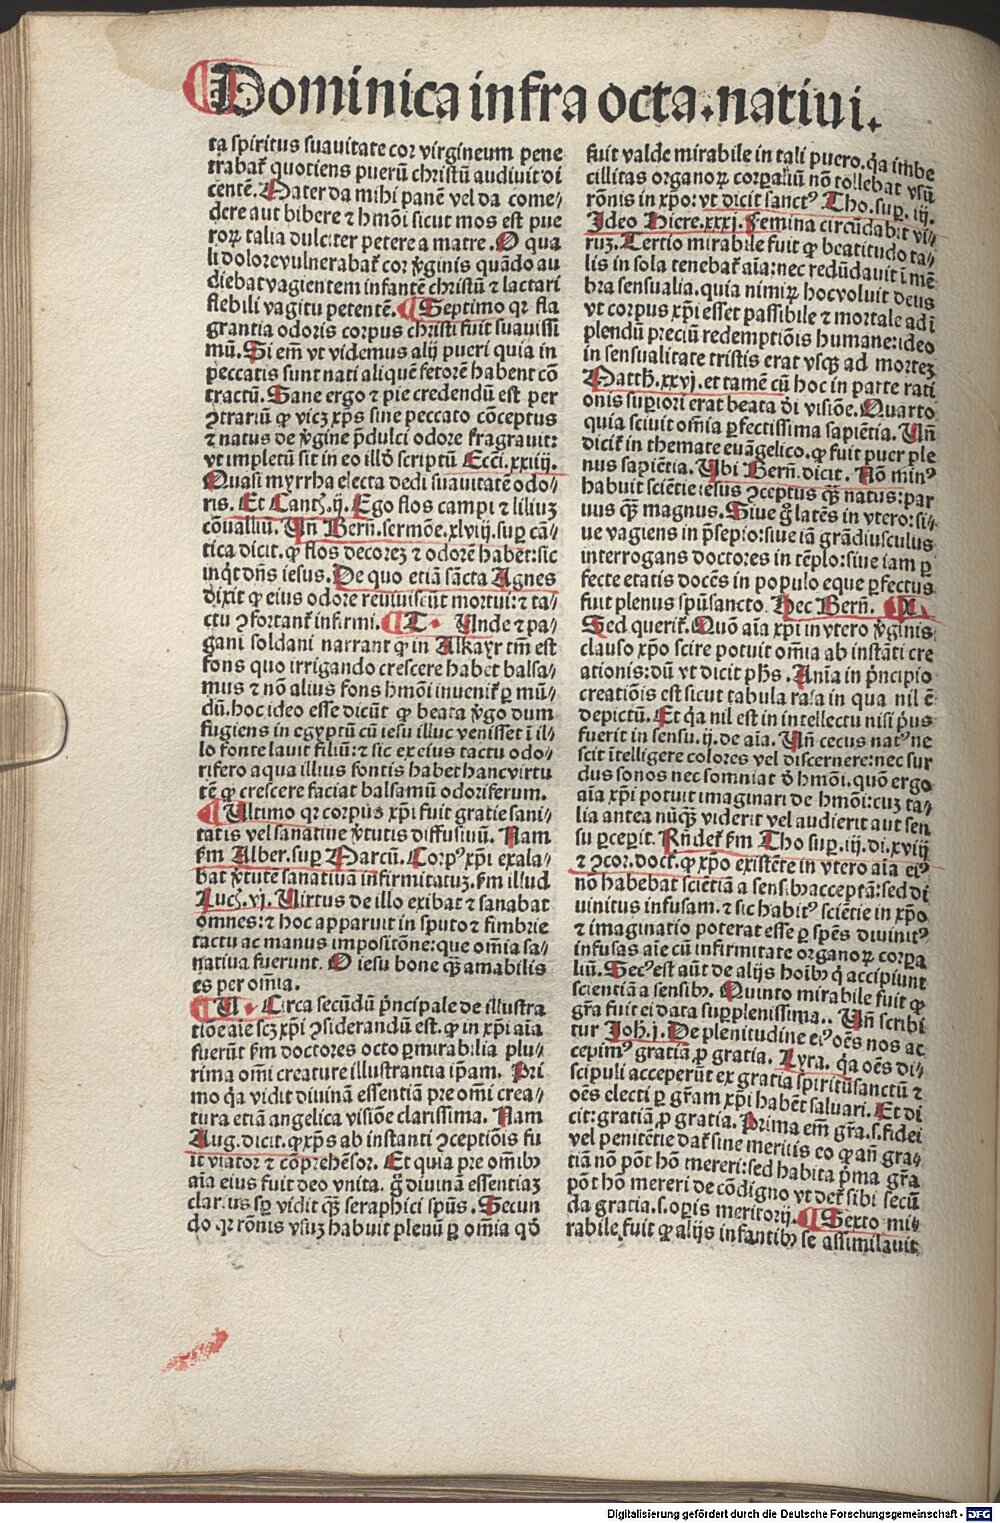 Dominica infra octa.natiui.
ta spiritus suauitate cor virgineum pene
trabat̃ quotiens puerū christū audiuit di
centē. Mater da mihi panē vel da come⸗
dere aut bibere ⁊ hm̄oi sicut mos est pue
roꝝ talia dulciter petere a matre. O qua
li dolore vulnerabat̃ cor v̓ginis quādo au
diebat vagientem infantē christū ⁊ lactari
flebili vagitu petentē. Septimo qꝛ fla
grantia odoris corpus christi fuit suauissi
mū. Si em̄ vt videmus alij pueri quia in
peccatis sunt nati aliquē fetorē habent cō
tractū. Sane ergo ⁊ pie credendū est per
ↄtrariū ꝙ vicꝫ xp̄s sine peccato cōceptus
⁊ natus de v̓gine p̄dulci odore fragrauit:
vt impletū sit in eo illd̓ scriptū Ecci.xxiiij.
Quasi myrrha electa dedi suauitatē odo⸗
ris. Et Canth̓.ij. Ego flos campi ⁊ liliuꝫ
cōualliū. Un̄ Bern̄.sermōe.xlviij.suꝑ cā⸗
tica dicit. ꝙ flos decoreꝫ ⁊ odorē habet: sic
inq̇t dn̄s iesus. De quo etiā sācta Agnes
dixit ꝙ eius odore reuiuiscūt mortui: ⁊ ta⸗
ctu ↄfortant̃ infirmi. T. Unde ⁊ pa⸗
gani soldani narrant ꝙ in Alkayr tm̄ est
fons quo irrigando crescere habet balsa⸗
mus ⁊ nō alius fons hm̄oi inuenit̃ ꝑ mū⸗
dū. hoc ideo esse dicūt ꝙ beata v̓go dum
fugiens in egyptū cū iesu illuc venisset ī il⸗
lo fonte lauit filiū: ⁊ sic ex eius tactu odo⸗
rifero aqua illius fontis habet hanc virtu
tē ꝙ crescere faciat balsamū odoriferum.
Ultimo qꝛ corpus xp̄i fuit gratie sani⸗
tatis vel sanatiue v̓tutis diffusiuū. Nam
fm̄ Alber.suꝑ Marcū. Corpꝰ xp̄i exala⸗
bat v̓tutē sanatiuā infirmitatuꝫ. fm̄ illud
Luc̓.vj. Uirtus de illo exibat ⁊ sanabat
omnes: ⁊ hoc apparuit in sputo ⁊ fimbrie
tactu ac manus impositōne: que om̄ia sa⸗
natiua fuerunt. O iesu bone q̄ꝫ amabilis
es per om̄ia.
U. Circa secūdū p̄ncipale de illustra
tiōe aīe scꝫ xp̄i ↄsiderandū est. ꝙ in xp̄i aīa
fuerūt fm̄ doctores octo ꝑmirabilia plu⸗
rima om̄i creature illustrantia ip̄am. Pri
mo q̇a vidit diuinā essentiā pre om̄i crea⸗
tura etiā angelica visiōe clarissima. Nam
Aug.dicit. ꝙ xp̄s ab instanti ↄceptiōis fu
it viator ⁊ cōprehēsor. Et quia pre om̄ibꝫ
aīa eius fuit deo vnita. g̊ diuinā essentiaꝫ
clarius sꝑ vidit q̄ꝫ seraphici sp̄us. Secun
do qꝛ rōnis vsuꝫ habuit plenū ꝑ om̄ia qd̓
fuit valde mirabile in tali puero. q̇a imbe
cillitas organoꝝ corꝑaliū nō tollebat vsū
rōnis in xp̄o: vt dicit sanctꝰ Tho.suꝑ.iij.
Ideo Hiere.xxxj. Femina circūdabit vi⸗
ruꝫ. Tertio mirabile fuit ꝙ beatitudo ta⸗
lis in sola tenebat̃ aīa: nec redūdauit ī mē
bra sensualia. quia nimiꝝ hoc voluit deus
vt corpus xp̄i esset passibile ⁊ mortale ad ī
plendū preciū redemptiōis humane: ideo
in sensualitate tristis erat vsqꝫ ad morteꝫ
Matth̓.xxvj. et tamē cū hoc in parte rati
onis suꝑiori erat beata d̓i visiōe. Quarto
quia sciuit om̄ia ꝑfectissima sapiētia. Un̄
dicit̃ in themate euāgelico. ꝙ fuit puer ple
nus sapiētia. Ubi Bern̄.dicit. Nō minꝰ
habuit sciētie iesus ↄceptus q̄ꝫ natus: par
uus q̄ꝫ magnus. Siue g̊ latēs in vtero: si⸗
ue vagiens in p̄sepio: siue iā grādiusculus
interrogans doctores in tēplo: siue iam ꝑ
fecte etatis docēs in populo eque ꝑfectus
fuit plenus sp̄usancto. Hec Bern̄. X.
Sed querit̃. Quō aīa xp̄i in vtero v̓ginis
clauso xp̄o scire potuit om̄ia ab instāti cre
ationis: dū vt dicit ph̄s. Anīa in p̄ncipio
creatiōis est sicut tabula rasa in qua nil ē
depictū. Et q̇a nil est in intellectu nisi p̓us
fuerit in sensu.ij.de aīa. Un̄ cecus natꝰ ne
scit ītelligere colores vel discernere: nec sur
dus sonos nec somniat d̓ hm̄oi. quō ergo
aīa xp̄i potuit imaginari de hm̄oi: cuꝫ ta⸗
lia antea nūqꝫ viderit vel audierit aut sen
su ꝑceperit. Rn̄det̃ fm̄ Tho suꝑ.iij.di.xviij
⁊ ↄcor.doct̓. ꝙ xp̄o existēte in vtero aīa eiꝰ
nō habebat sciētiā a sensibꝫ acceptā: sed di
uinitus infusam. ⁊ sic habitꝰ sciētie in xp̄o
⁊ imaginatio poterat esse ꝑ sp̄es diuinitꝰ
infusas aīe cū infirmitate organoꝝ corꝑa
liū. Secꝰ est aūt de alijs hoībꝫ q̇ accipiunt
scientiā a sensibꝫ. Quinto mirabile fuit ꝙ
gr̄a fuit ei data suꝑplenissima.. Un̄ scribi
tur Joh̓.j. De plenitudine eiꝰ oēs nos ac
cepimꝰ gratiā ꝓ gratia. Lyra. q̇a oēs di⸗
scipuli acceperūt ex gratia spiritūsanctū ⁊
oēs electi ꝑ gr̄am xp̄i habēt saluari. Et di
cit: gratiā ꝓ gratia. Prima em̄ gr̄a.s.fidei
vel penitētie dat̃ sine meritis eo ꝙ an̄ gra⸗
tiā nō pōt hō mereri: sed habita p̓ma gr̄a
pōt hō mereri de cōdigno vt det̃ sibi secū
da gratia.s.oꝑis meritorij. Sexto mi⸗
rabile fuit ꝙ alijs infantibꝫ se assimilauit
Digitalisierung gefördert durch die Deutsche Forschungsgemeinschaft - DFG